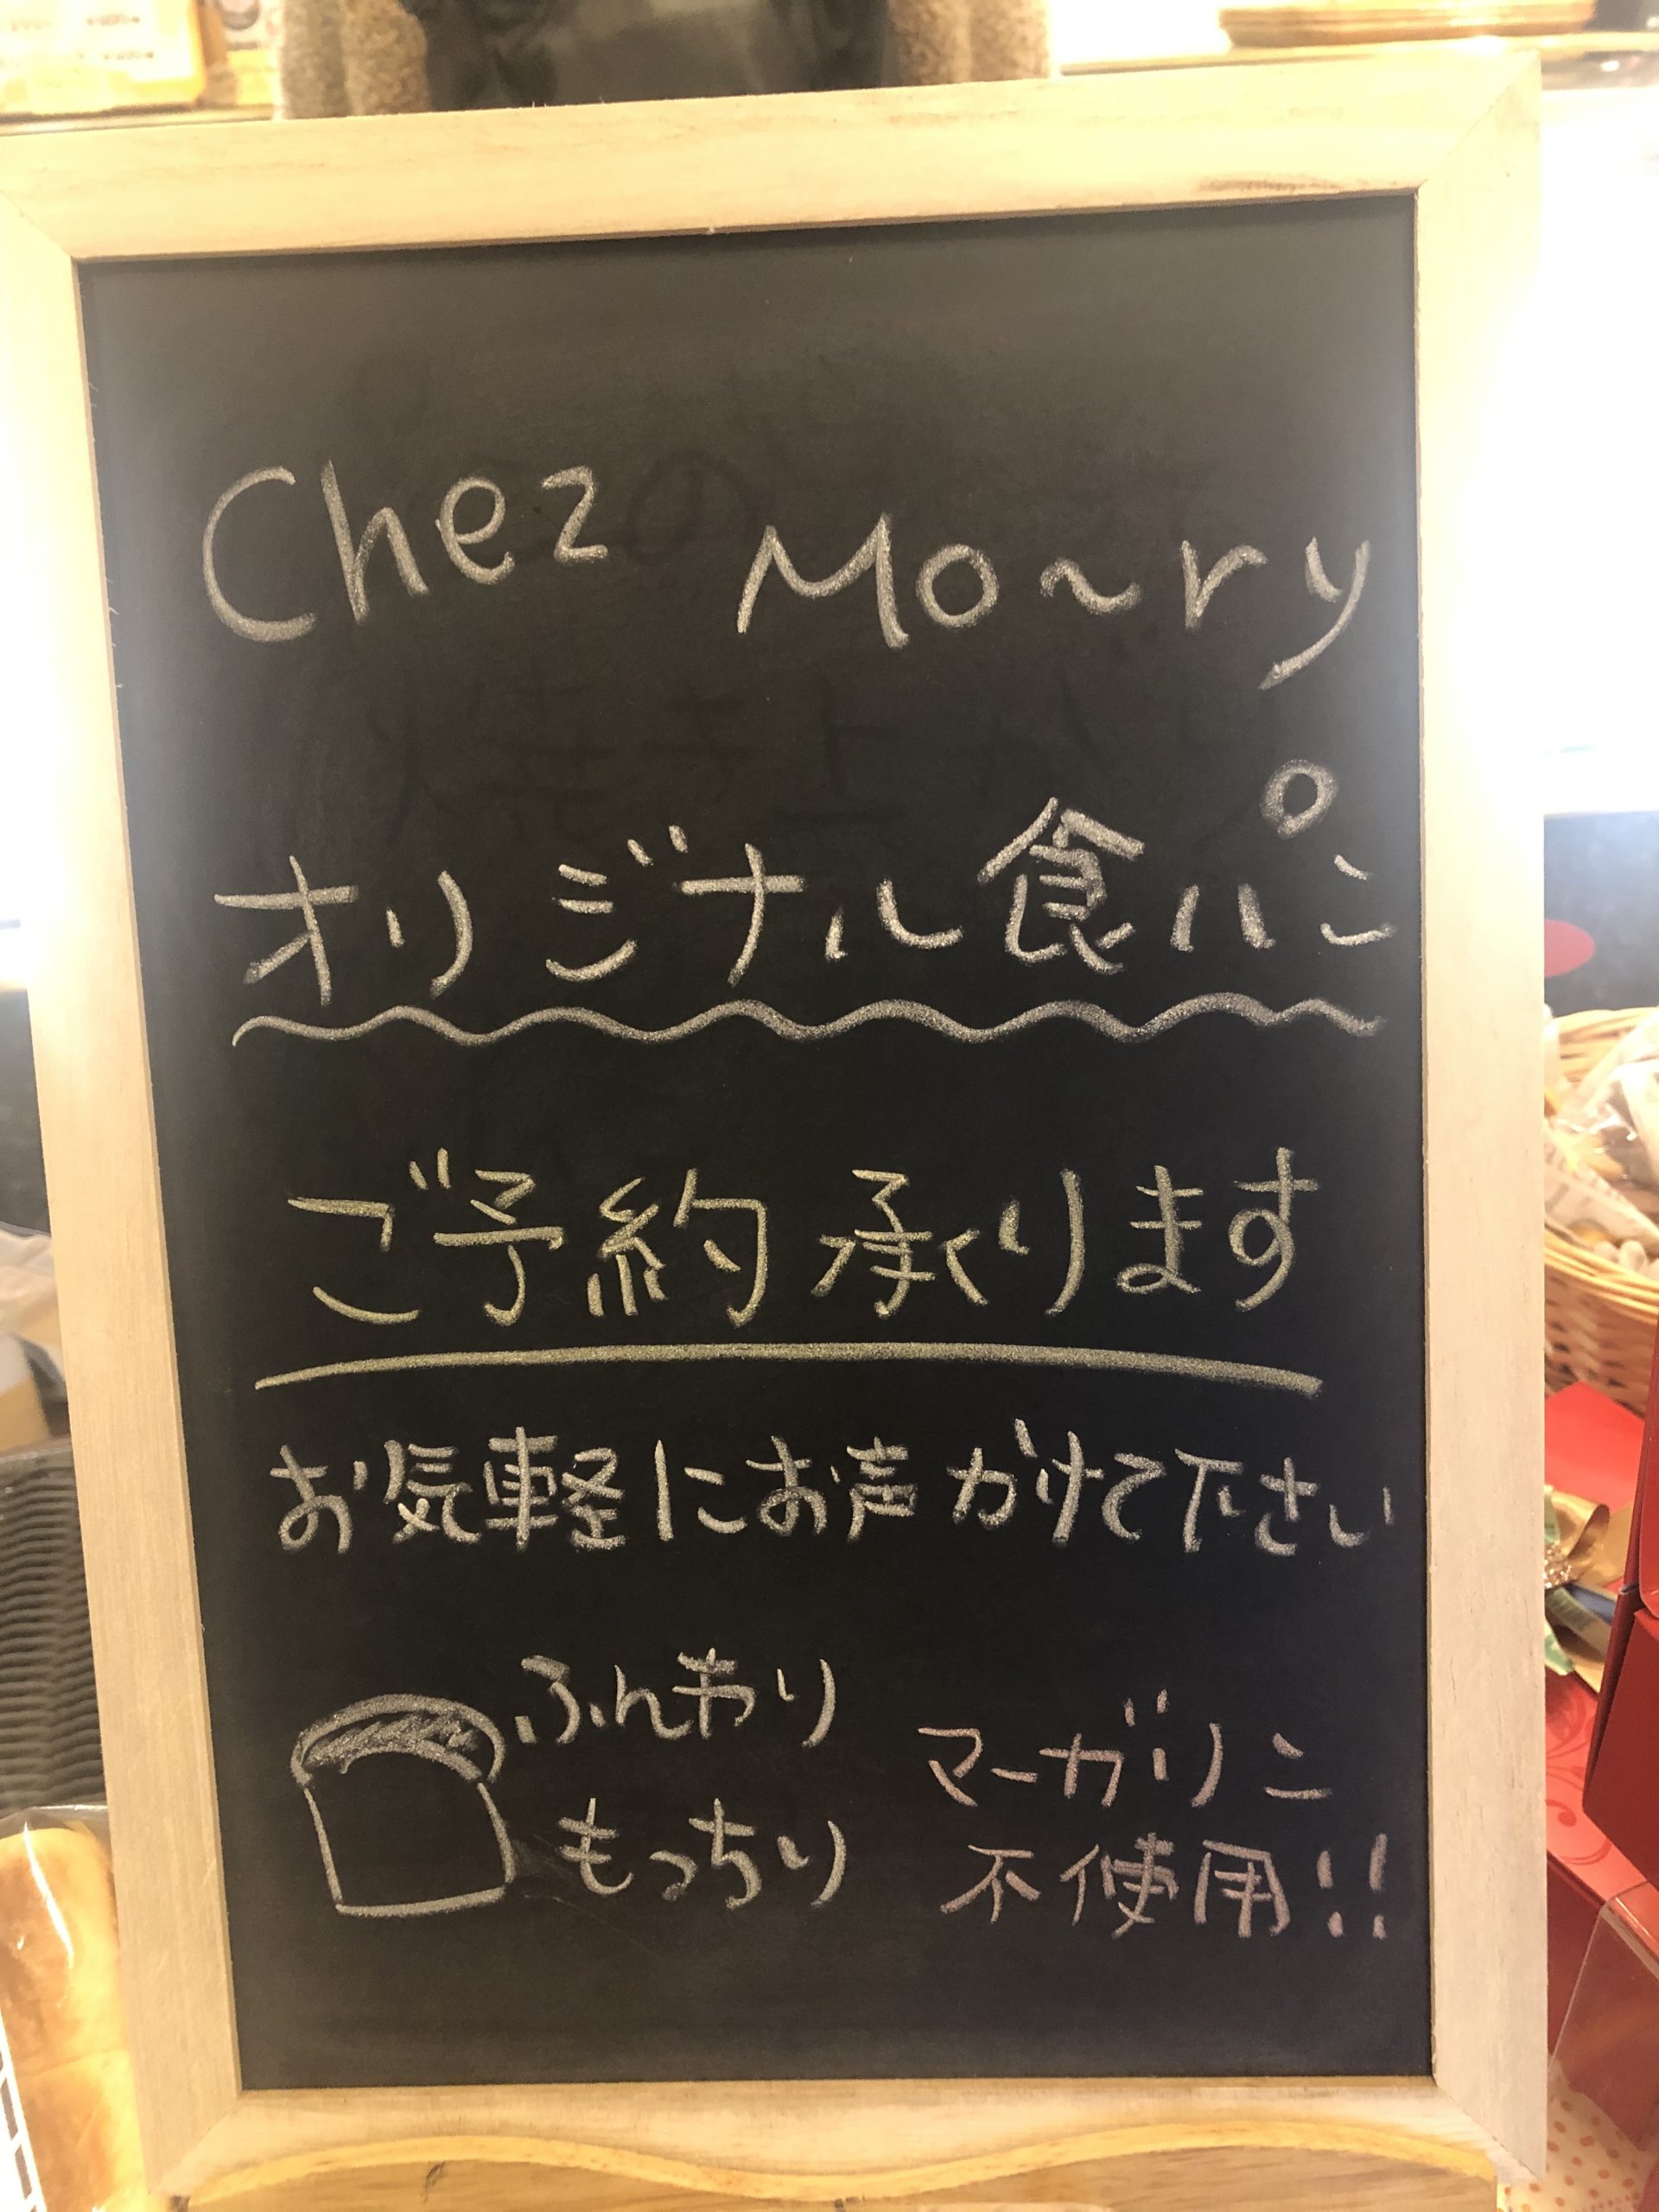 Chez Mo~ry
オリジナル食パン
ご予約承ります
お気軽にお声がけて下さい
ふんわり
もっちり
マーガリン
不使用!!